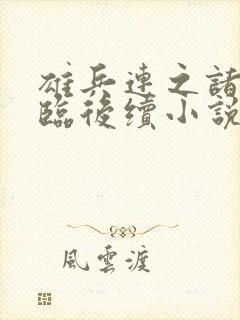 雄兵連之諸
臨後續小說
風雲渡